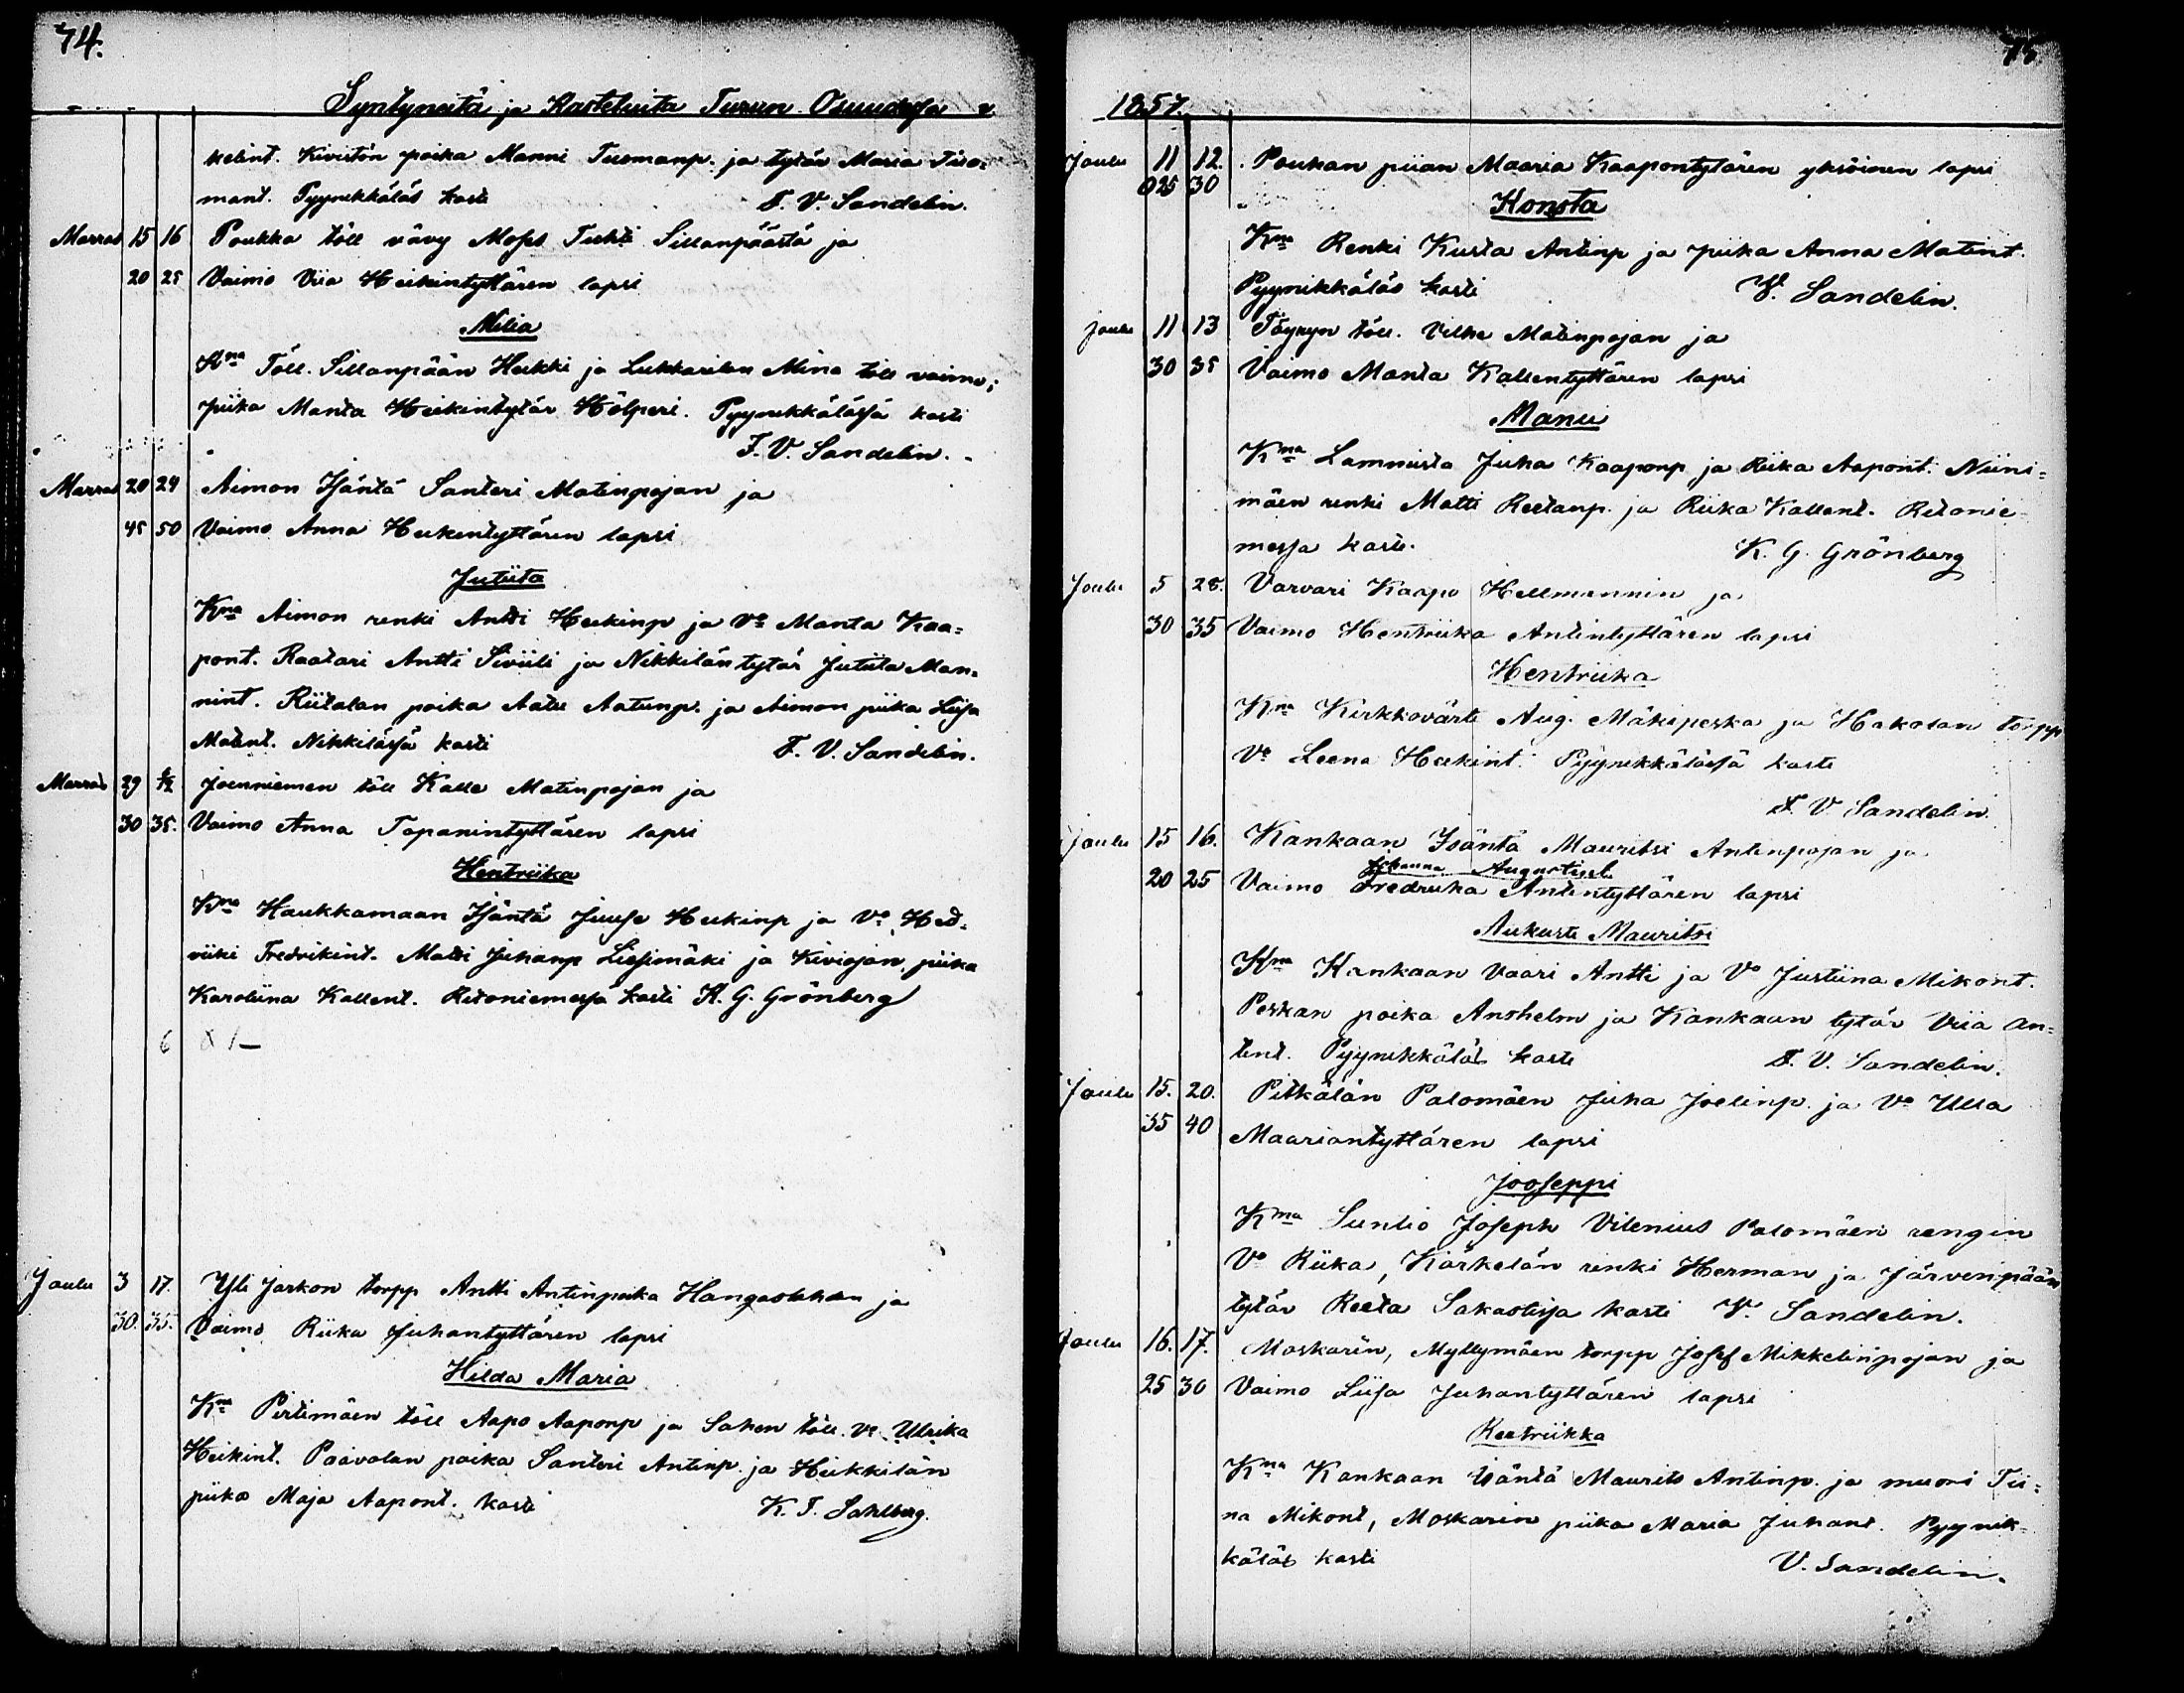 74.
Syntyneitä ja Kasteluita Turun Osuudessa v.
kelint. Kivistön poika Manni Tuomanp. ja tytär Maria Tuo-
mant. Pyynikkäläs kasti F. V. Sandelin.
Marras 15 16 Poukka töll vävy Moses Tuhti Sillanpäästä ja
20 25 Vaimo Viia Heikintyttären lapsi
Milia
Kna Töll. Sillanpään Heikki ja Lukkarilan Mina töll vaimo;
piika Manta Heikintytär Hölperi. Pyynikkälässä kasti
F. V. Sandelin.
Marras 20 24 Aimon Isäntä Santeri Matinpojan ja
45 50 Vaimo Anna Heikintyttären lapsi
Jutiita
Kna Aimon renki Antti Heikinp ja Vo Manta Kaa-
pont. Raatari Antti Siviili ja Nikkilän tytär Jutiita Man-
nint. Riitalan poika Aatu Aatunp. ja Aimon piika Liisa
Matint. Nikkilässä kasti F. V. Sandelin.
Marras 29 Joenniemen töll Kalle Matinpojan ja
30 35. Vaimo Anna Tapanintyttären lapsi
Hentriika
Kna Haukkamaan Isäntä Juuse Heikinp ja Vo Hed-
viiki Fredrikint. Matti Juhanp Liesimäki ja Kiviojan piika
Karoliina Kallent. Ritoniemessä kasti K. G. Grönberg
6
Joulu 3 17. Yli Jaskon torpp Antti Antinpoika Hangaslahden ja
30. 35. Vaimo Riika Juhantyttären lapsi
Hilda Maria
Kna Pirtimäen töll Aapo Aaponp ja Sahen töll. Vo Ulrika
Heikint. Paavolan poika Santeri Antinp. ja Heikkilän
piika Maja Aapont. kasti K. F. Sahlberg.
75
1857.
Joulu 11 12. Pouhan piian Maaria Kaapontytären yksöinen lapsi
025 30
Konsta
Kna Renki Kusta Antinp ja piika Anna Matint.
Pyynikkäläs kasti V. Sandelin.
Joulu 11 13 Töyryn töll. Vilhe Matinpojan ja
30 35 Vaimo Manta Kallentyttären lapsi
Manu
Kma Lammista Juha Kaaponp ja Riika Aapont. Niini-
mäen renki Matti Reetanp. ja Riika Kallent. Ritonie-
messa kasti. K. G. Grönberg
Joulu 5 28. Varvari Kaapo Hellmannin ja
30 35 Vaimo Hentriika Antintyttären lapsi
Hentriika
Kna Kirkkovärti Aug. Mäkipeska ja Hakolan torpp
Vo Leena Heikint. Pyynikkälässä kasti
F. V. Sandelin
Joulu 15 16. Kankaan Isäntä Mauritsi Antinpojan ja
Johanna
20 25 Vaimo Fredriika Antintyttären lapsi
Aukusti Mauritsi
Kna Kankaan Vaari Antti ja Vo Justiina Mikont.
Peskan poika Anshelm ja Kankaan tytär Viia An-
tint. Pyynikkäläs kasti F. V. Sandelin.
Joulu 15. 20. Pitkälän Palomäen Juha Joelinp. ja Vo Ulla
35 40 Maariantyttären lapsi
Jooseppi
Kma Suntio Joseph Vilenius Palomäen rengin
Vo Riika, Kärkelän renki Herman ja Järvenpään
tytär Reeta Sakastissa kasti V. Sandelin.
Joulu 16. 17. Moskarin, Myllymäen torpp Josef Mikkelinpojan ja
25 30 Vaimo Liisa Juhantyttären lapsi
Reetriikka
Kma Kankaan Isäntä Maurits Antinp. ja muori Tii-
na Mikont, Moskarin piika Maria Juhant. Pyynik-
käläs kasti V. Sandelin.